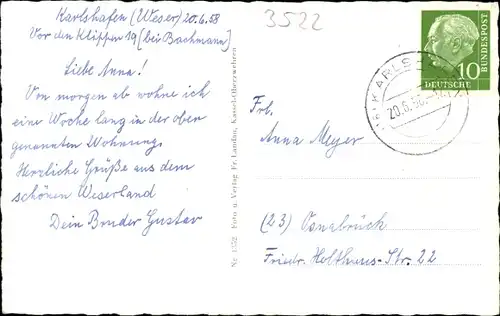 Karlshafen (Weser) 20.6.58
Vor den Klippen 19 (bei Bachmann)
Liebe Anna!
Von morgen ab wohne ich
eine Woche lang in der oben
genannten Wohnung.
Herzliche Grüße aus dem
schönen Weserland
Dein Bruder Gustav
3522
Nr. 1352 Foto u. Verlag Fr. Landau, Kassel-Oberzwehren
KARLS
20.6.58
10
DEUTSCHE
BUNDESPOST
Frl.
Anna Meyer
(23) Osnabrück
Friedr. Holthaus-Str. 22